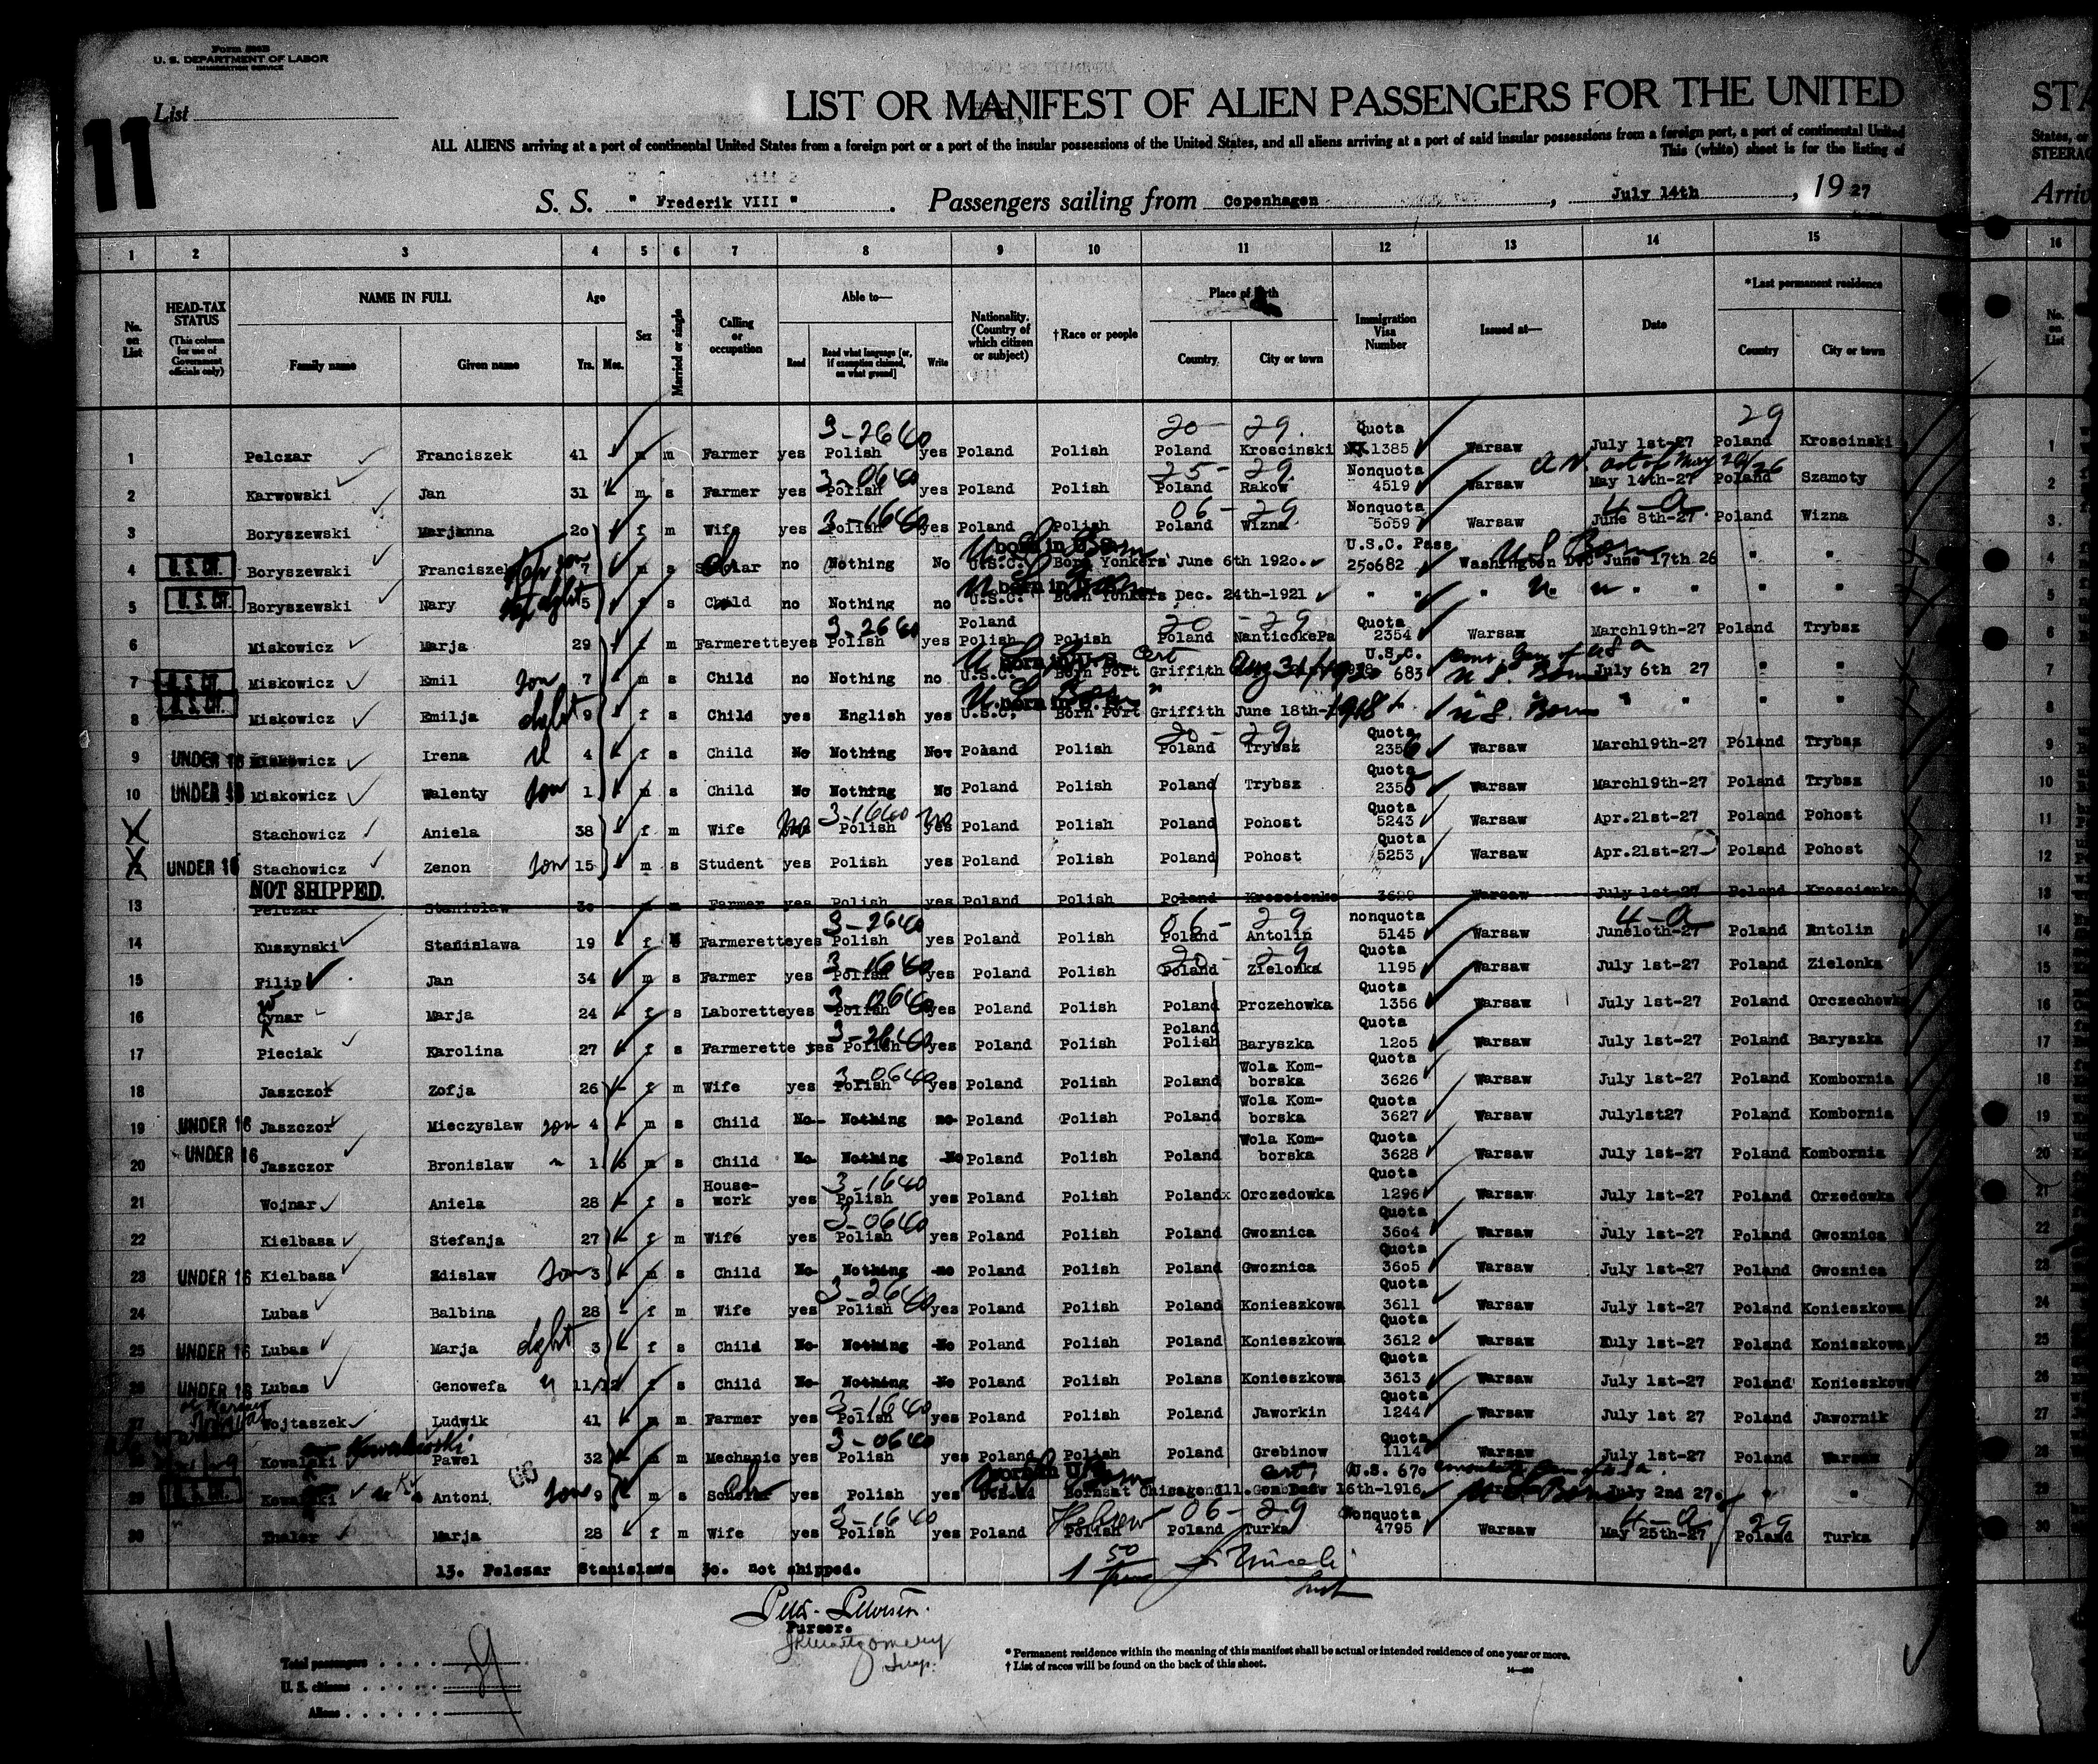 Form 500B
U. S. DEPARTMENT OF LABOR
IMMIGRATION SERVICE
List
11
LIST OR MANIFEST OF ALIEN PASSENGERS FOR THE UNITED
STA
ALL ALIENS arriving at a port of continental United States from a foreign port or a port of the insular possessions of the United States, and all aliens arriving at a port of said insular possessions from a foreign port, a port of continental United
States, or
This (white) sheet is for the listing of
STEERAG
S. S. " Frederik VIII ". Passengers sailing from Copenhagen, July 14th, 19 27
Arriv
1 2 3 4 5 6 7 8 9 10 11 12 13 14 15 16
No. on List
HEAD-TAX STATUS (This column for use of Government officials only)
NAME IN FULL Family name Given name
Age Yrs. Mos.
Sex
Married or single
Calling or occupation
Able to— Read Read what language [or, if exemption claimed, on what ground] Write
Nationality. (Country of which citizen or subject)
†Race or people
Place of Birth Country. City or town
Immigration Visa Number
Issued at—
Date
*Last permanent residence Country City or town
No. on List
3-2640 20- 29. Quota 29
1 Pelczar Franciszek 41 m m Farmer yes Polish yes Poland Polish Poland Kroscinski 1385 Warsaw July 1st-27 Poland Kroscinski 1
3-0640 25- 29. Nonquota
2 Karwowski Jan 31 m s Farmer yes Polish yes Poland Polish Poland Rakow 4519 Warsaw May 14th-27 Poland Szamoty 2
3-1640 06- 29 Nonquota 4-a
3 Boryszewski Marjanna 20 f m Wife yes Polish yes Poland Polish Poland Wizna 5059 Warsaw June 8th-27 Poland Wizna 3.
born in U.S. U.S.C. Pass U.S. Born
4 U. S. CIT. Boryszewski Franciszek step son 7 m s no Nothing No U.S.C. Born Yonkers June 6th 1920. 250682 Washington D.C June 17th 26 " " 4
5 U. S. CIT. Boryszewski Nary step dght 5 f s Child no Nothing no U.S.C. Born Yonkers Dec. 24th-1921 " " " " " " " 5
3-2640 Poland 20 - 29 Quota
6 Miskowicz Marja 29 f m Farmerette yes Polish yes Polish Polish Poland NanticokePa 2354 Warsaw March19th-27 Poland Trybsz 6
born in U.S. Cert U.S.C. Cons. Gen of USA
7 U. S. CIT. Miskowicz Emil son 7 m s Child no Nothing no U.S.C. Born Port Griffith Aug 31/1920 683 U.S. Born July 6th 27 " " 7
born in U.S.
8 U. S. CIT. Miskowicz Emilja dght 9 f s Child yes English yes U.S.C. Born Port Griffith June 18th-1918 U.S. Born " " " " 8
20- 29. Quota
9 UNDER 16 Miskowicz Irena 4 f s Child No Nothing No Poland Polish Poland Trybsz 2356 Warsaw March19th-27 Poland Trybsz 9
Quota
10 UNDER 16 Miskowicz Walenty son 1 m s Child No Nothing No Poland Polish Poland Trybsz 2355 Warsaw March19th-27 Poland Trybsz 10
3-1640 Quota
Stachowicz Aniela 38 f m Wife no Polish no yes Poland Polish Poland Pohost 5243 Warsaw Apr.21st-27 Poland Pohost 11
Quota
UNDER 16 Stachowicz Zenon son 15 m s Student yes Polish yes Poland Polish Poland Pohost 5253 Warsaw Apr.21st-27 Poland Pohost 12
NOT SHIPPED.
13 Pelczar Stanislaw 30 m Farmer yes Polish yes Poland Polish Poland Kroscienko 3629 Warsaw July 1st-27 Poland Kroscienko 13
3-2640 06- 29 nonquota 4-a
14 Kuszynski Stanislawa 19 f Farmerette yes Polish yes Poland Polish Poland Antolin 5145 Warsaw June10th-27 Poland Antolin 14
3-1640 20- 29 Quota
15 Filip Jan 34 m s Farmer yes Polish yes Poland Polish Poland Zielonka 1195 Warsaw July 1st-27 Poland Zielonka 15
3-0640 Quota
16 Cynar Marja 24 f s Laborette yes Polish yes Poland Polish Poland Prczehowka 1356 Warsaw July 1st-27 Poland Orczechowka 16
3-2640 Poland Quota
17 Pieciak Karolina 27 f s Farmerette yes Polish yes Poland Polish Polish Baryszka 1205 Warsaw July 1st-27 Poland Baryszka 17
3-0640 Wola Kom- Quota
18 Jaszczor Zofja 26 f m Wife yes Polish yes Poland Polish Poland borska 3626 Warsaw July 1st-27 Poland Kombornia 18
Wola Kom- Quota
19 UNDER 16 Jaszczor Mieczyslaw son 4 m s Child No Nothing no Poland Polish Poland borska 3627 Warsaw July1st27 Poland Kombornia 19
Wola Kom- Quota
20 UNDER 16 Jaszczor Bronislaw " 1 6 m s Child No Nothing No Poland Polish Poland borska 3628 Warsaw July 1st-27 Poland Kombornia 20
House- 3-1640 Quota
21 Wojnar Aniela 28 f s work yes Polish yes Poland Polish Polandx Orczedowka 1296 Warsaw July 1st-27 Poland Orzedowka 21
3-0640 Quota
22 Kielbasa Stefanja 27 f m Wife yes Polish yes Poland Polish Poland Gwoznica 3604 Warsaw July 1st-27 Poland Gwoznica 22
Quota
23 UNDER 16 Kielbasa Zdislaw son 3 m s Child No Nothing no Poland Polish Poland Gwoznica 3605 Warsaw July 1st-27 Poland Gwoznica 23
3-2640 Quota
24 Lubas Balbina 28 f m Wife yes Polish yes Poland Polish Poland Konieszkowa 3611 Warsaw July 1st-27 Poland Konieszkowa 24
Quota
25 UNDER 16 Lubas Marja dght 3 f s Child No Nothing No Poland Polish Poland Konieszkowa 3612 Warsaw July 1st-27 Poland Koniszkowa 25
Quota
26 UNDER 16 Lubas Genowefa " 11/12 f s Child No Nothing No Poland Polish Polans Konieszkowa 3613 Warsaw July 1st-27 Poland Konieszkowa 26
3-1640 Quota
27 Wojtaszek Ludwik 41 m m Farmer yes Polish yes Poland Polish Poland Jaworkin 1244 Warsaw July 1st 27 Poland Jawornik 27
Kowalewski 3-0640 Quota
Pawel 32 m m Mechanic yes Polish yes Poland Polish Poland Grebinow 1114 Warsaw July 1st-27 Poland Warsaw 28
born in U.S. cert (U.S. 670
29 Antoni son 9 m s yes Polish yes 16th-1916 July 2nd 27. " " 29
3-1640 Hebrew 06- 29 Nonquota 4-a 29
30 Thaler Marja 28 f m Wife yes Polish yes Poland Polish Poland Turka 4795 Warsaw May 25th-27 Poland Turka 30
13. Pelczar Stanislawa 30. not shipped.
Purser.
Total passengers
U. S. citizens
Aliens
* Permanent residence within the meaning of this manifest shall be actual or intended residence of one year or more.
† List of races will be found on the back of this sheet.